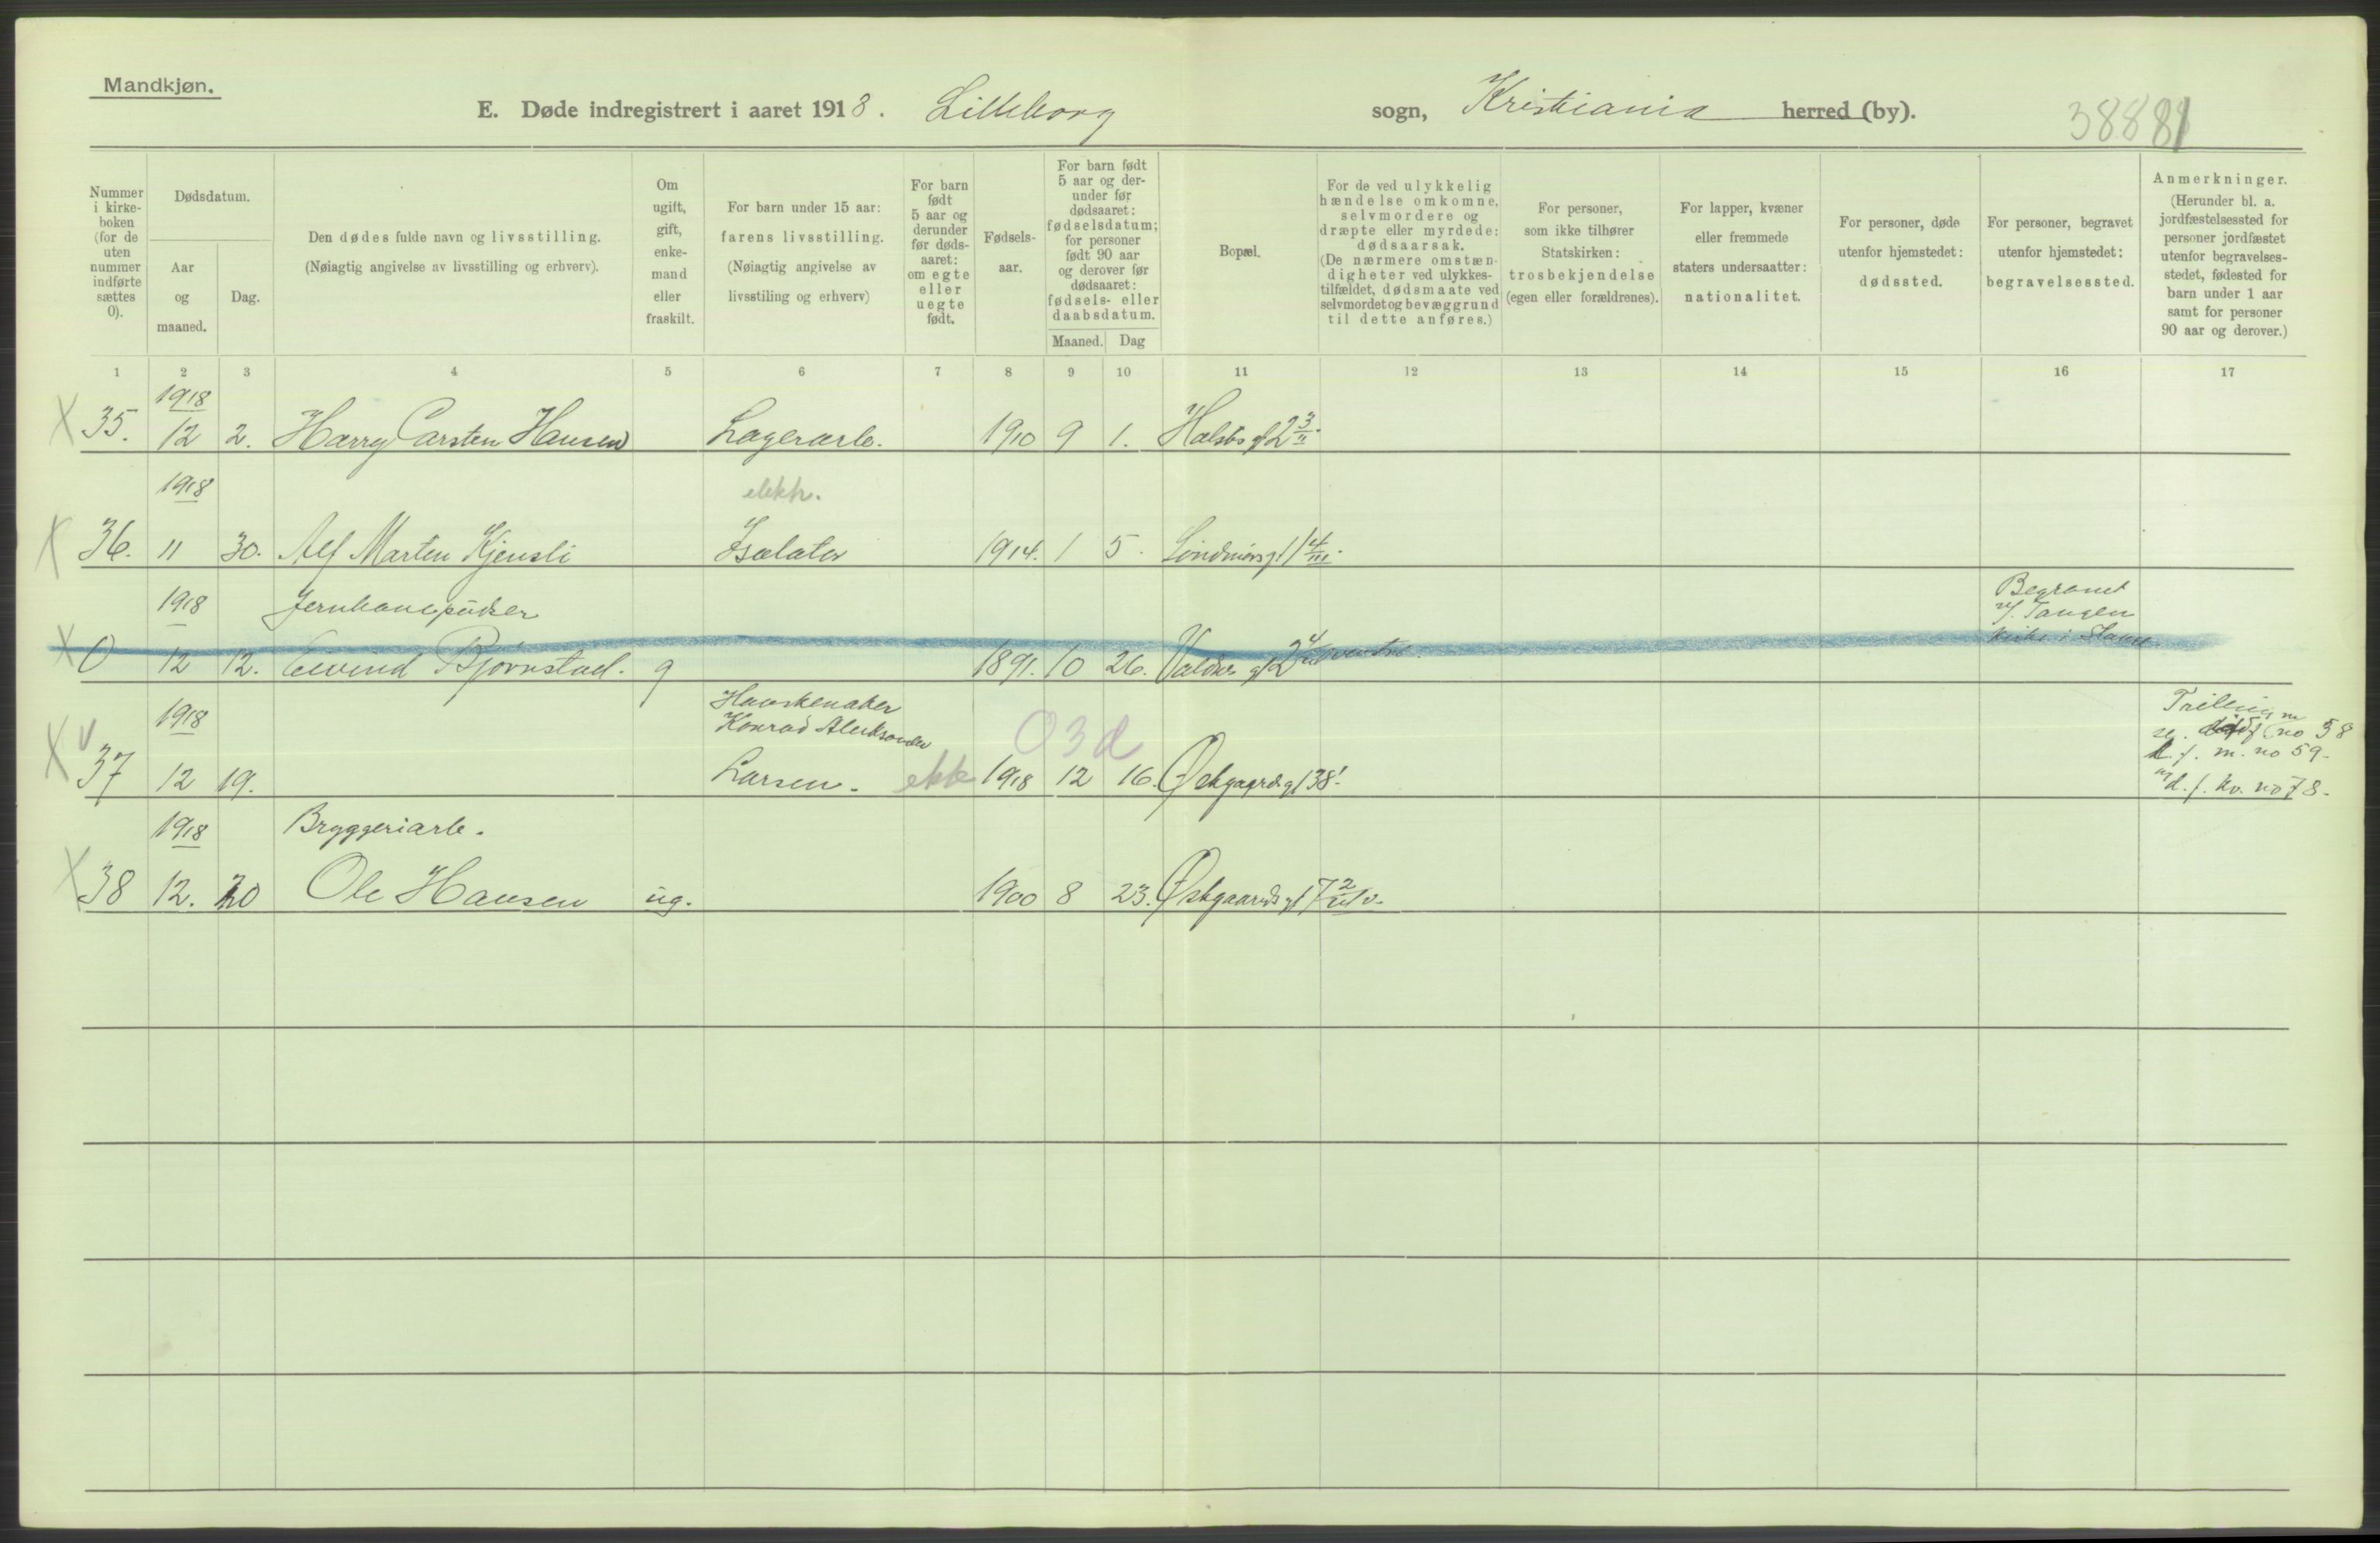 Mandkjøn.
E. Døde indregistrert i aaret 1918. Lilleborg sogn, Kristiania herred (by).
Nummer i kirke-boken (for de uten nummer indførte sættes 0).
Dødsdatum.
Aar og maaned.
Dag.
Den dødes fulde navn og livsstilling.
(Nøiagtig angivelse av livsstilling og erhverv).
Om ugift, gift, enke-mand eller fraskilt.
For barn under 15 aar: farens livsstilling.
(Nøiagtig angivelse av livsstiling og erhverv)
For barn født 5 aar og derunder før døds-aaret: om egte eller uegte født.
Fødsels-aar.
For barn født 5 aar og der-under før dødsaaret: fødselsdatum; for personer født 90 aar og derover før dødsaaret: fødsels- eller daabsdatum.
Maaned. Dag
Bopæl.
For de ved ulykkelig hændelse omkomne, selvmordere og dræpte eller myrdede: dødsaarsak.
(De nærmere omstæn-digheter ved ulykkes-tilfældet, dødsmaate ved selvmordet og bevæggrund til dette anføres.)
For personer, som ikke tilhører Statskirken: trosbekjendelse (egen eller forældrenes).
For lapper, kvæner eller fremmede staters undersaatter: nationalitet.
For personer, døde utenfor hjemstedet: dødssted.
For personer, begravet utenfor hjemstedet: begravelsessted.
Anmerkninger.
(Herunder bl. a. jordfæstelsessted for personer jordfæstet utenfor begravelses-stedet, fødested for barn under 1 aar samt for personer 90 aar og derover.)
1 2 3 4 5 6 7 8 9 10 11 12 13 14 15 16 17
1918
35. 12 2. Harry Carsten Hansen Lagerarb. 1910 9 1.
1918 elektr.
36. 11 30. Alf Marten Kjensli Isolatør 1914. 1 5.
1918 Jernbanepudser Begravet v/. Tangen kirke i Stange
0 12 12. Eivind Bjørnstad. g 1891. 10 26. Valdres gt 2
1918 Hanskemaker
Konrad Aleksander 03d
37 12 19. Larsen. ekte 1918 12 16. Østgaardsgt 38
Trilling m
no 58
d. f. m. no 59.
d. f. kv. no 78.
1918 Bryggeriarb.
38 12. 20 Ole Hansen ug. 1900 8 23. Østgaardsgt 7